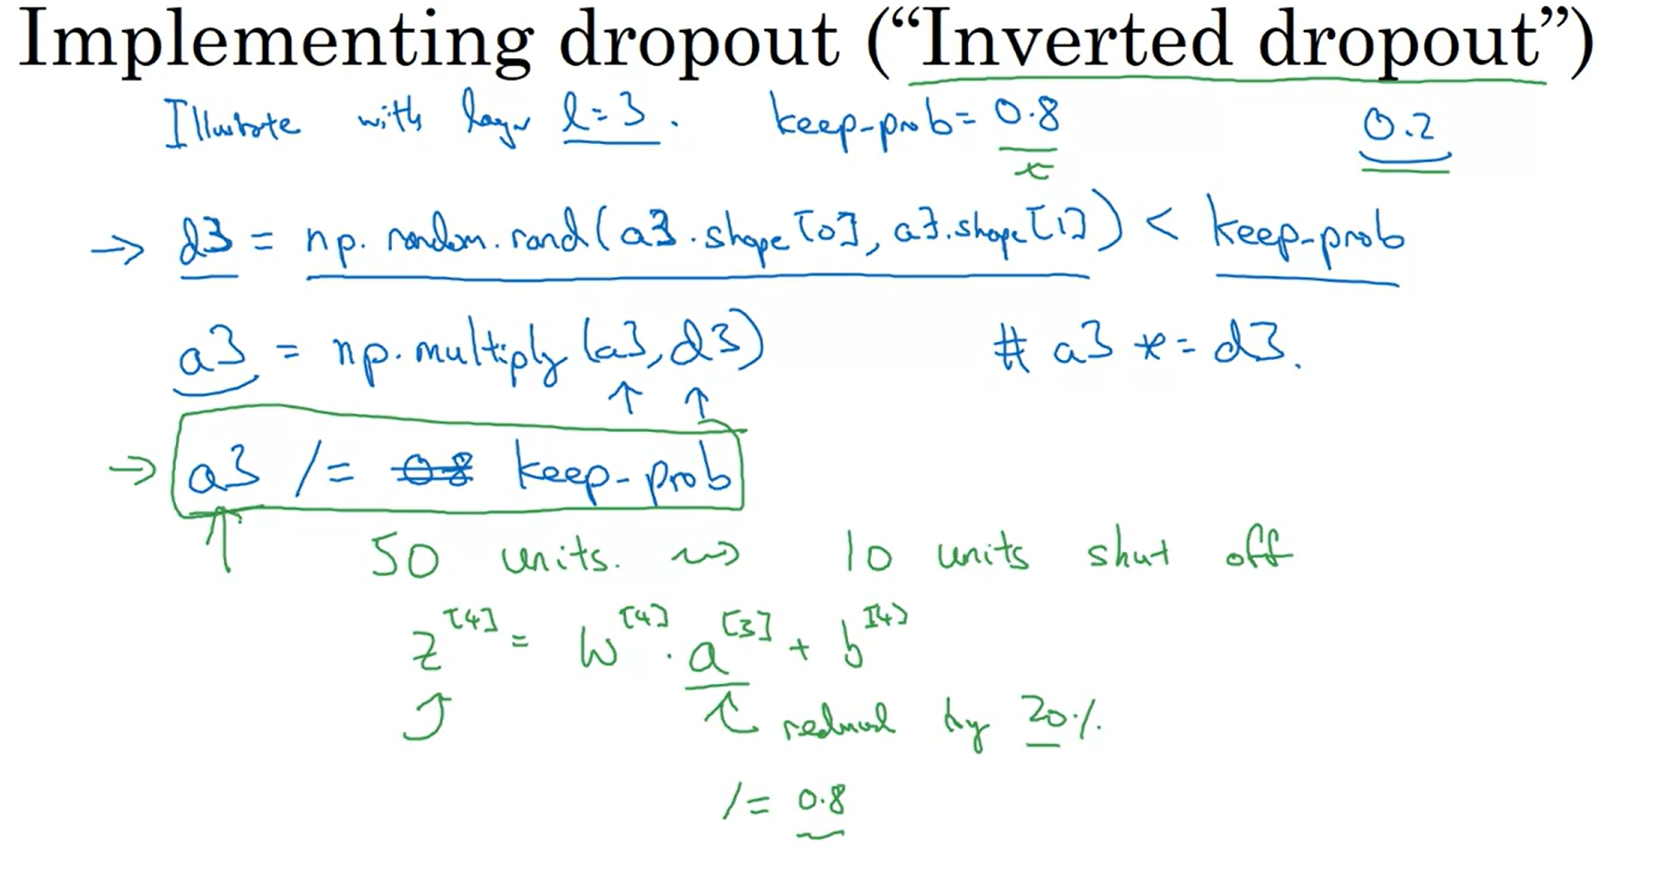 Implementing dropout (“Inverted dropout”)
Illustrate with layer l=3. keep-prob= 0.8 0.2
→ d3 = np.random.rand(a3.shape[0], a3.shape[1]) < keep-prob
a3 = np.multiply(a3,d3) # a3 *= d3.
→ a3 /= 0.8 keep-prob
50 units. ⇝ 10 units shut off
z^[4] = W^[4] · a^[3] + b^[4]
reduced by 20%
/= 0.8